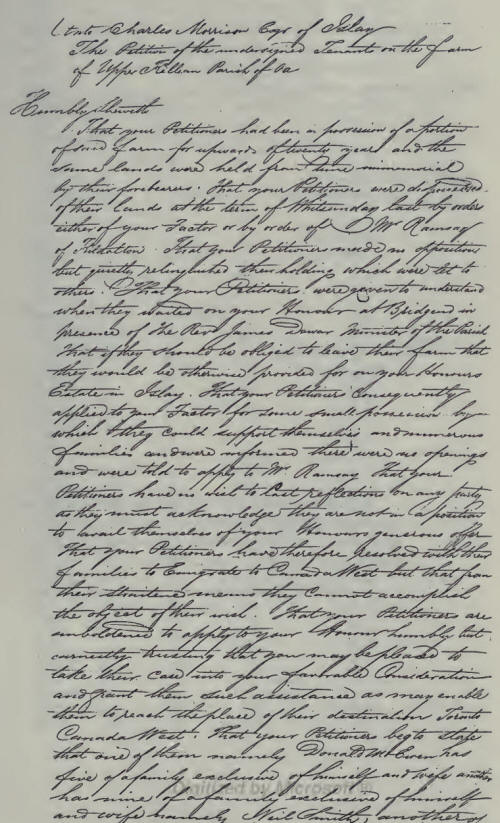 Unto Charles Morrison Esqr of Islay
The Petition of the undersigned Tenants on the farm
of Upper Killean Parish of Oa
Humbly Sheweth
That your Petitioners had been in possession of a portion
of said farm for upwards of twenty years and the
same lands were held from time immemorial
by their forebearers. That your Petitioners were dispossessed
of their lands at the term of Whitsunday last by orders
either of your Factor or by order of Mr Ramsay
of Kildalton. That your Petitioners made no opposition
but quietly relinquished their holding which were let to
others. That your Petitioners were given to understand
when they waited on your Honour at Bridgend in
presence of the Revd James Dewar Minister of the Parish
that if they should be obliged to leave their farm that
they would be otherwise provided for on your Honours
Estate in Islay. That your Petitioners consequently
applied to your Factor for some small possession by
which they could support themselves and numerous
families and were informed there were no openings
and were told to apply to Mr Ramsay That your
Petitioners have no wish to cast reflections on any party
as they must acknowledge they are not in a position
to avail themselves of your Honours generous offer
That your Petitioners have therefore resolved with their
families to Emigrate to Canada West but that from
their straitened means they cannot accomplish
the object of their wish. That your Petitioners are
emboldened to apply to your Honour humbly but
earnestly trusting that you may be pleased to
take their case into your favorable Consideration
and grant them such assistance as may enable
them to reach the place of their destination Toronto
Canada West. That your Petitioners beg to state
that one of them namely Donald McEwen has
five of a family exclusive of himself and wife another
has nine of a family exclusive of himself
and wife namely Neil Smith, another of
Digitized by Microsoft®